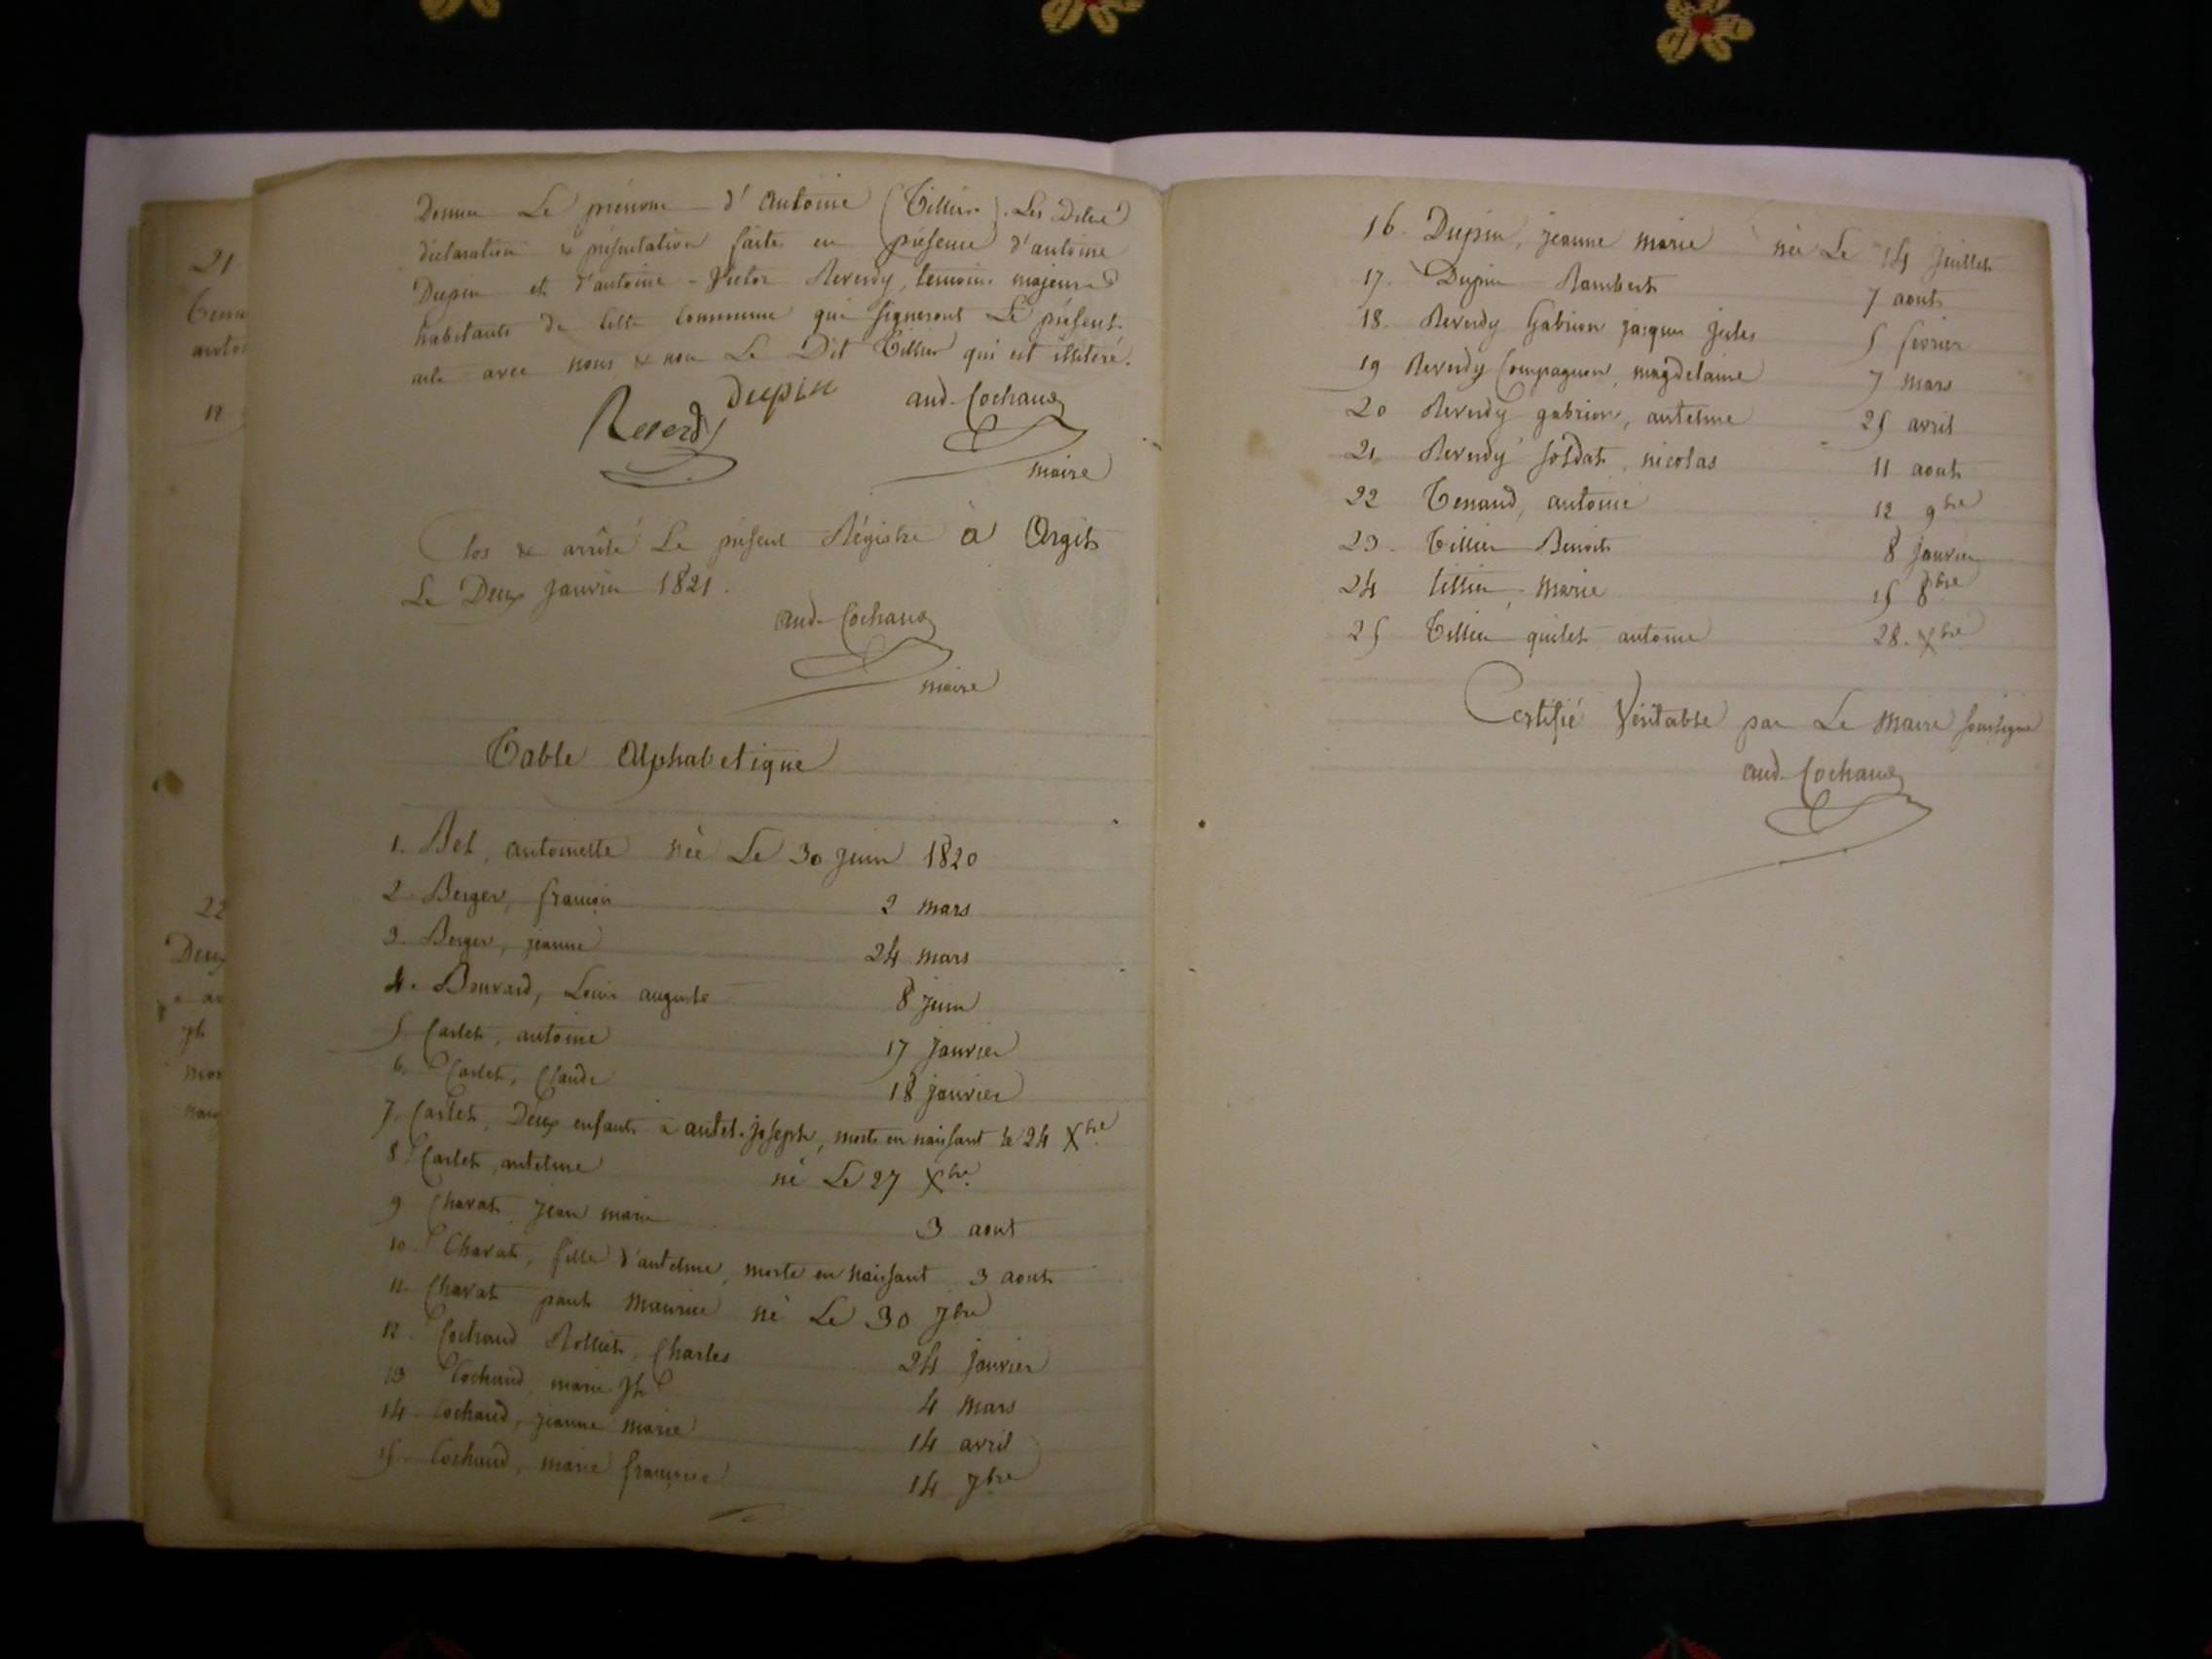 Donner Le prénom d'Antoine (Tillier). Les Dites
déclaration & présentation faites en présence d'antoine
Dupin et d'antoine-Victor Reverdy, temoins majeurs
habitants de cette Commune qui signeront Le présent
acte avec nous & non Le Dit Tillier qui est illitéré.
Dupin aud. Cochaud
Reverdy
maire
Clos & arrêté Le présent Régistre à Orgit
Le Deux Janvier 1821.
aud. Cochaud
maire
Table Alphabetique
1. Bel, antoinette née Le 30 Juin 1820
2. Berger, françois 2 mars
3. Berger, jeanne 24 mars
4. Bouvard, Louis auguste 8 Juin
5. Carlet, antoine 17 Janvier
6. Carlet, Claude 18 janvier
7. Carlet, Deux enfants à antel. joseph, morts en naissant le 24 Xbre
8. Carlet, antelme né Le 27 Xbre
9 Charat Jean marie 3 aout
10. Charat, fille d'antelme, morte en naissant 3 aout
11. Charat paul Maurice né Le 30 7bre
12. Cochaud Rolliet, Charles 24 janvier
13 Cochaud, marie Jh 4 mars
14. Cochaud, jeanne marie 14 avril
15. Cochaud, marie françoise 14 7bre
16. Dupin, jeanne marie née Le 14 Juillet
17. Dupin Rambert 7 aout
18. Reverdy Gabrion jacques jules 5 fevrier
19 Reverdy Compagnon, magdelaine 7 mars
20 Reverdy gabrion, antelme 25 avril
21 Reverdy soldat, nicolas 11 aout
22 Tenand, antoine 12 9bre
23. Tillier Benoit 8 janvier
24 tillier, Marie 15 8bre
25 Tillier quilet antoine 28. Xbre
Certifié Véritable par Le Maire soussigné
aud. Cochaud
21
12
22
Deux